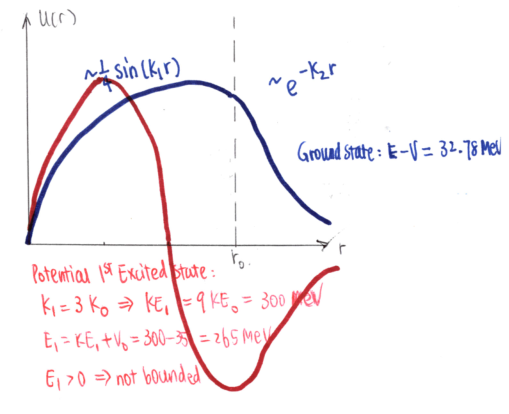 U(r)
~ 1/4 sin(K₁r)
~ e^{-K₂r}
Ground state: E-V = 32.78 MeV
r₀
r
Potential 1st Excited State:
K₁ = 3 K₀ ⇒ KE₁ = 9 KE₀ = 300 MeV
E₁ = KE₁ + V₀ = 300-35 = 265 MeV
E₁ > 0 ⇒ not bounded